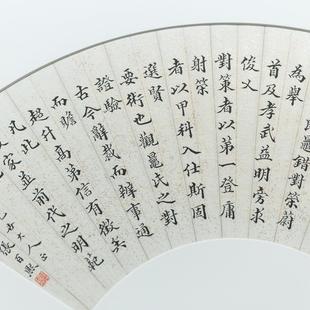 鼂錯對策蔚
為舉
首及孝武益明旁求
俊乂
對策者以第一登庸
射策
者以甲科入仕斯固
選賢
要術也觀鼂氏之對
證驗
古今辭裁而辨事通
而贍
超升高第信有徵矣
凡此
家並前代之明範
大人正
張百熙